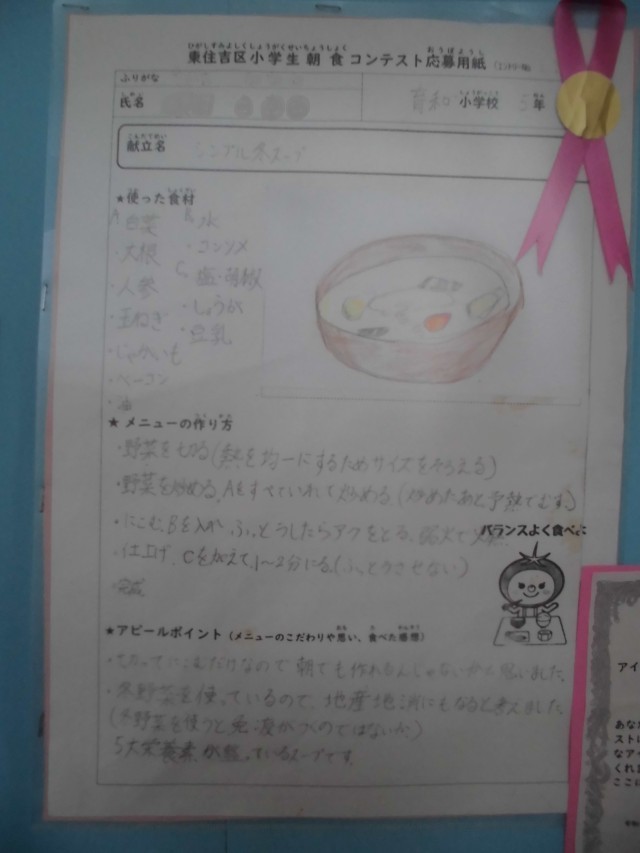 ひがしすみよしくしょうがくせいちょうしょく おうぼようし
東住吉区小学生 朝 食 コンテスト応募用紙
ふりがな
しめい
氏名
育和 しょうがっこう 小学校 5 ねん 年
こんだてめい
献立名 シンプル冬スープ
★使った食材
A 白菜 B 水
・大根 ・コンソメ
・人参 C 塩・胡椒
・玉ねぎ ・しょうが
・じゃがいも ・豆乳
・ベーコン
・油
★ メニューの作り方
・野菜を切る(熱を均一にするためサイズをそろえる)
・野菜を炒める、Aをすべていれて炒める。(炒めたあと予熱でむす)
・にこむ、Bを入れ ふっとうしたらアクをとる。弱火で
バランスよく食べ
・仕上げ、Cを加えて、1〜2分にる。(ふっとうさせない)
完成
★アピールポイント(メニューのこだわりや思い、食べた感想)
・切ってにこむだけなので朝でも作れるんじゃないかと思いました。
・冬野菜を使っているので、地産地消にもなると考えました。
(冬野菜を使うと免疫がつくのではないか?)
5大栄養素が整っているスープです。
アイ
あな
ストに
なアイ
くれま
ここに